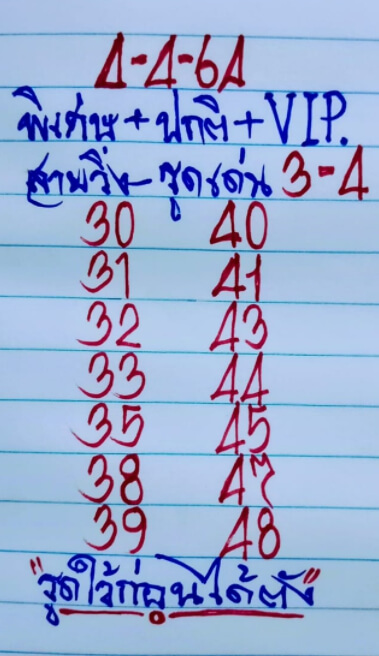 4-4-64
พิเศษ+ปกติ+VIP.
สายวิ่ง-รูดเด่น 3-4
30 40
31 41
32 43
33 44
35 45
38 47
39 48
"รูดไว้ก่อนได้ตัง"